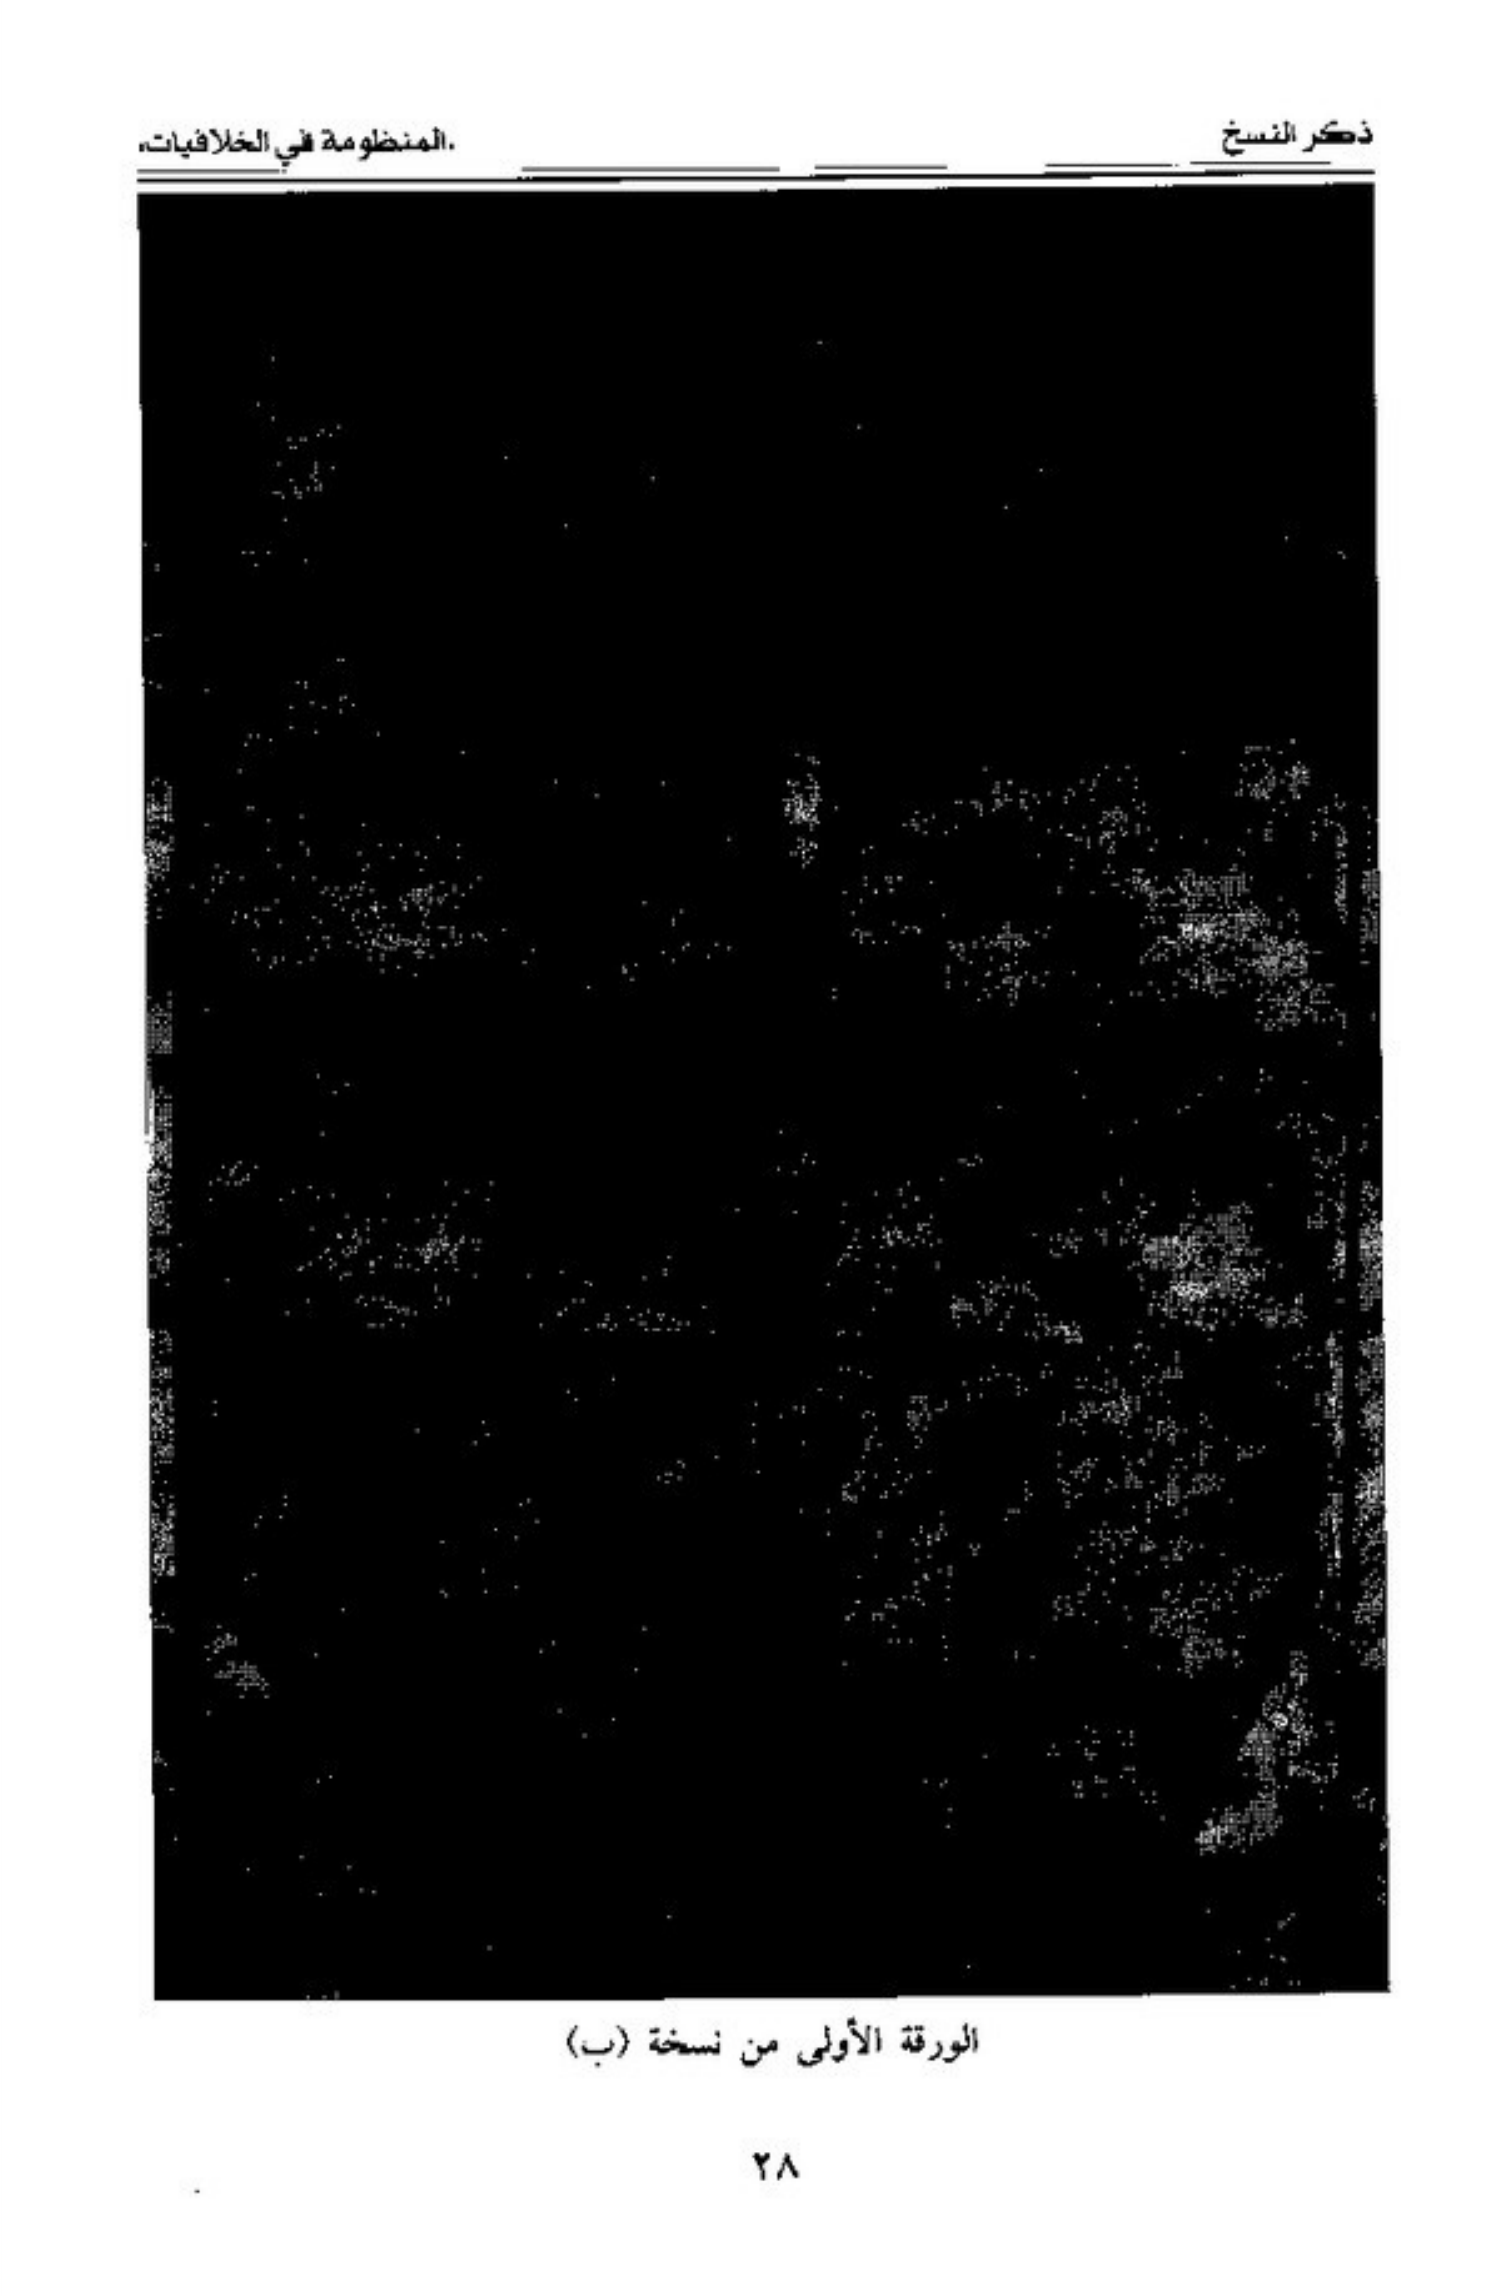 ذكر النسخ
«المنظومة في الخلافيات»
الورقة الأولى من نسخة (ب)
٢٨